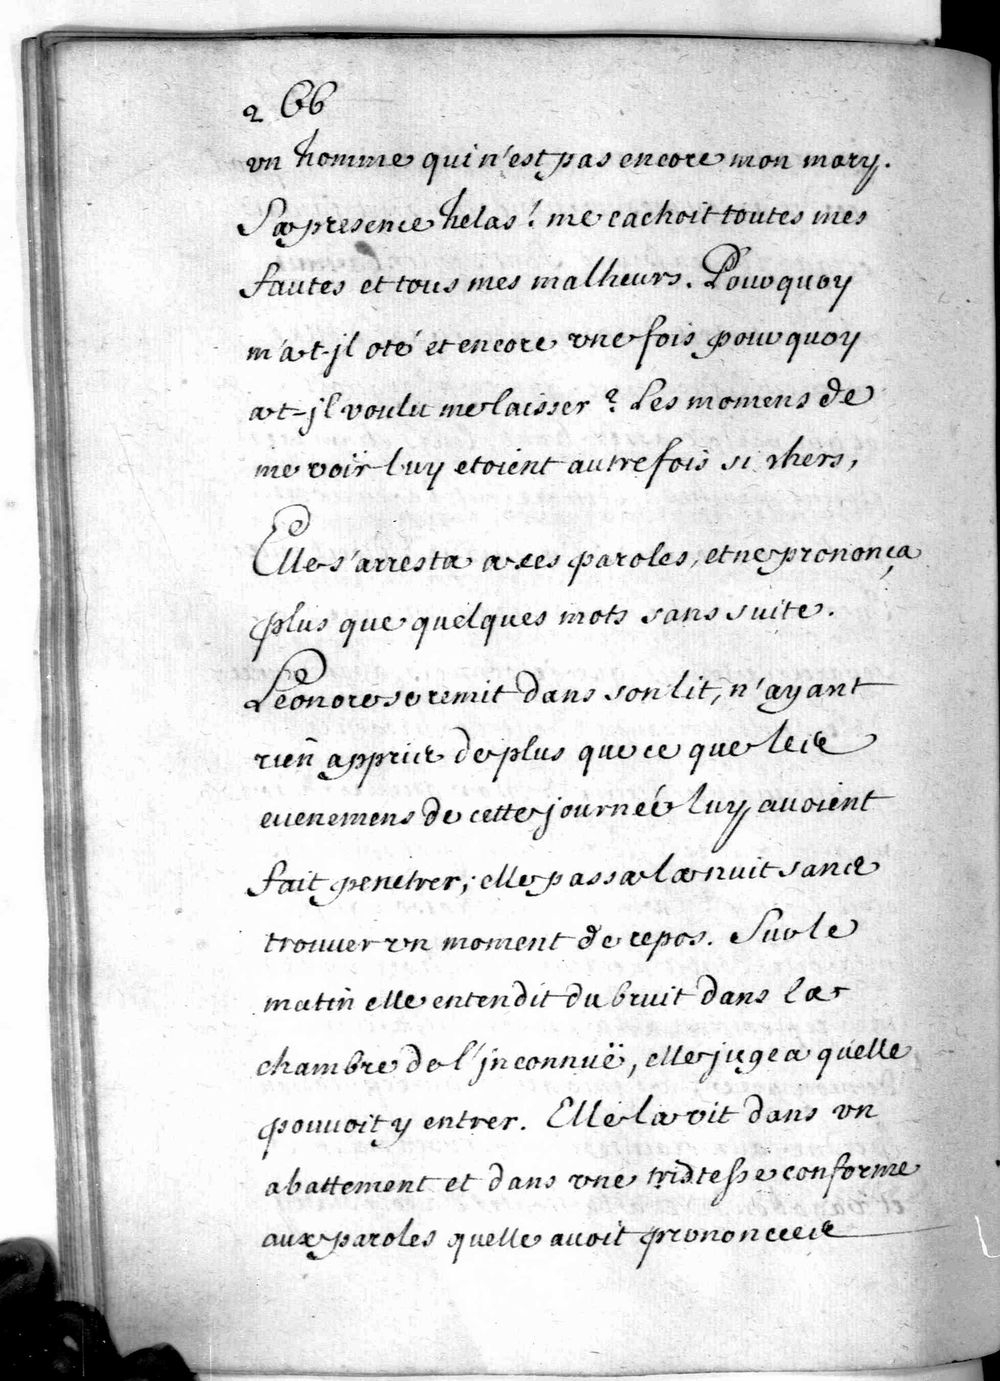 266
vn homme qui n'est pas encore mon mary.
Sa presence helas! me cachoit toutes mes
fautes et tous mes malheurs. Pourquoy
m'a-t-jl oté et encore vne fois pourquoy
a-t-jl voulu me laisser? Les momens de
me voir luy etoient autrefois si chers,
Elle s'arresta a ces paroles, et ne prononça
plus que quelques mots sans suite.
Léonore se remit dans son lit, n'ayant
rien appris de plus que ce que les
euenemens de cette journée luy auoient
fait penetrer; elle passa la nuit sans
trouuer vn moment de repos. Sur le
matin elle entendit du bruit dans la
chambre de l'jnconnuë, elle jugea quelle
pouuoit y entrer. Elle la vit dans vn
abattement et dans vne tristesse conforme
aux paroles quelle auoit prononcees